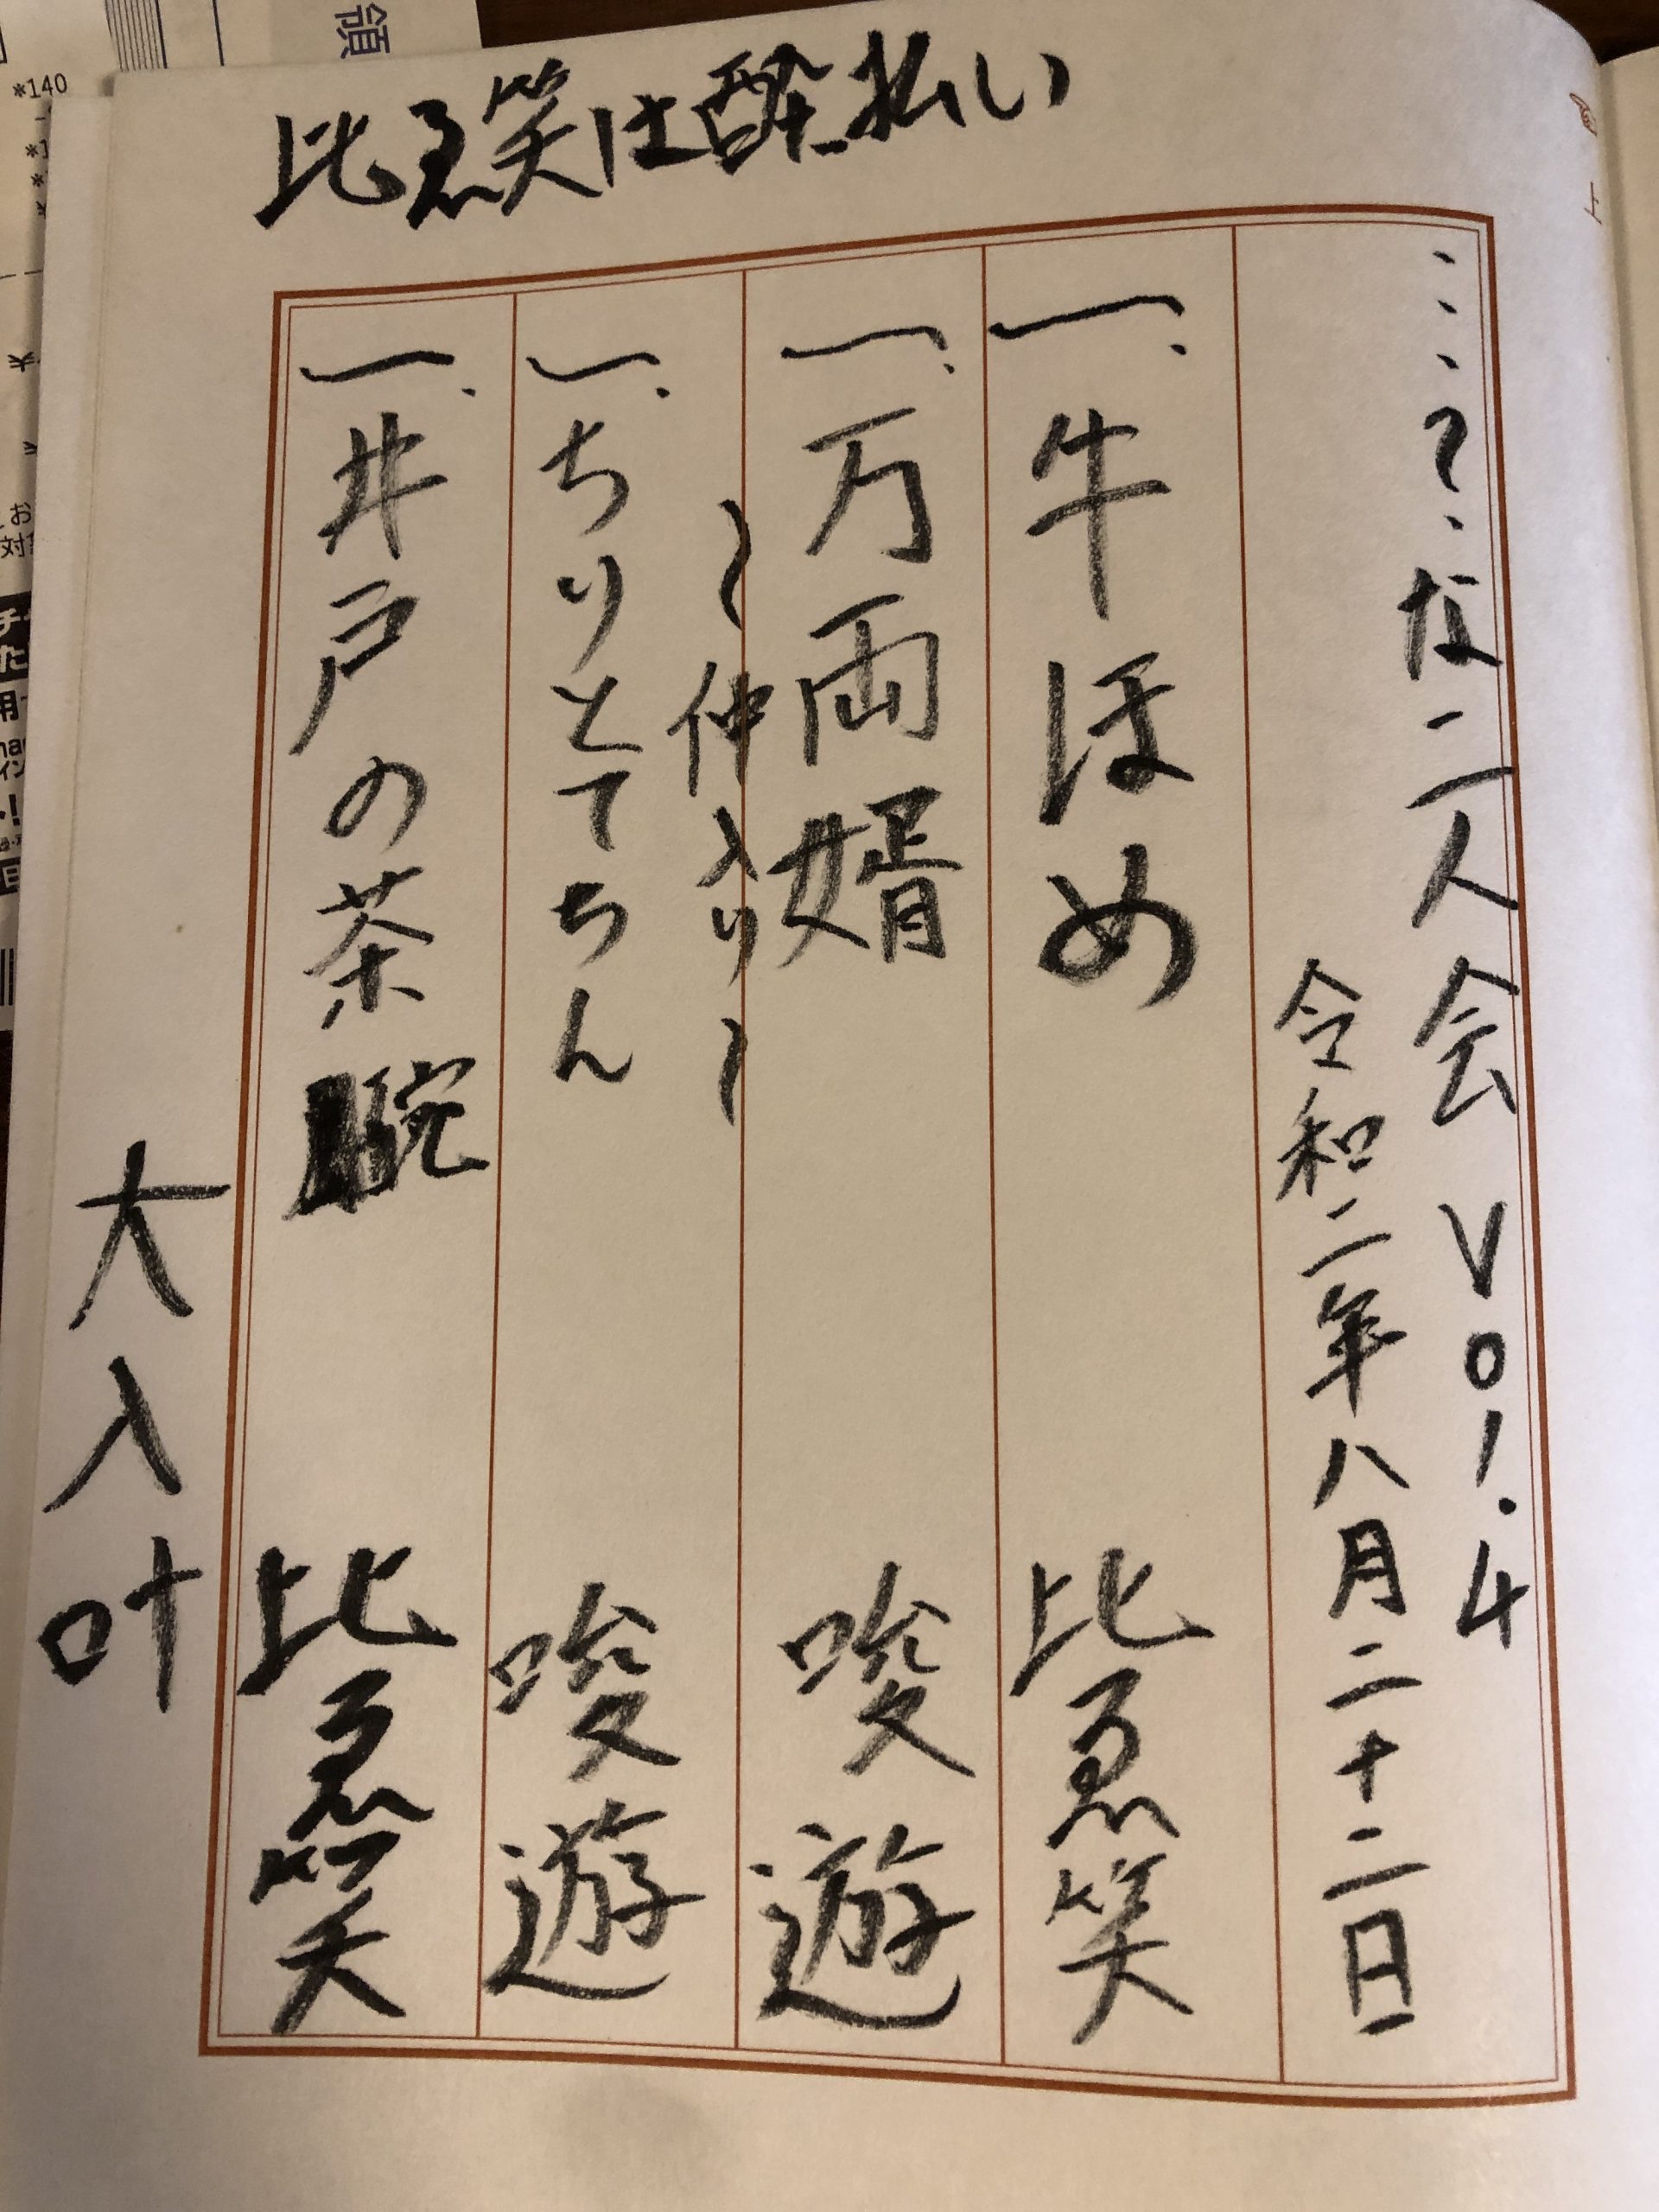 比恵笑は酔っ払い
…?な二人会 Vol.4
令和二年八月二十二日
一、牛ほめ 比恵笑
一、万両婿 唆遊
〜仲入り〜
一、ちりとてちん 唆遊
一、井戸の茶碗 比恵笑
大入叶
領
*140